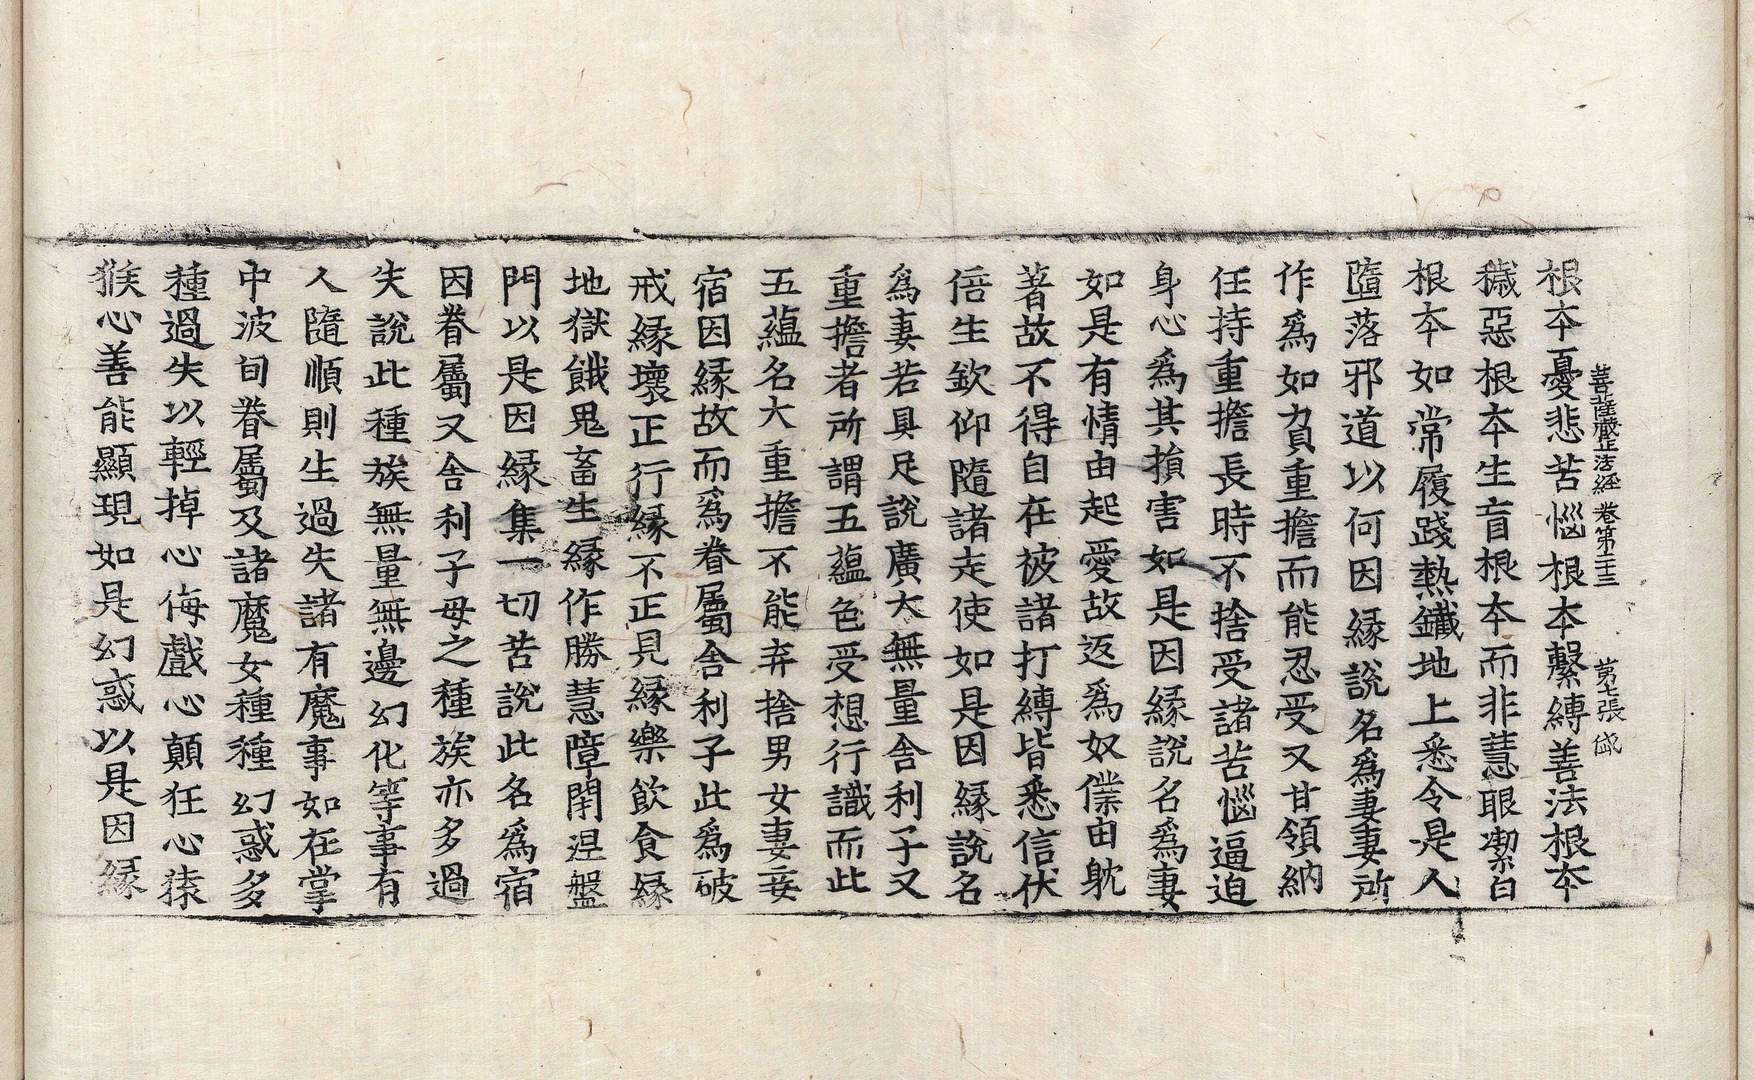 菩薩藏正法經 卷第三十三 第七張 岱
根本憂悲苦惱根本繫縛善法根本
穢惡根本生盲根本而非慧眼潔白
根本如常履踐熱鐵地上悉令是人
墮落邪道以何因緣說名爲妻妻所
作爲如負重擔而能忍受又甘領納
任持重擔長時不捨受諸苦惱逼迫
身心爲其損害如是因緣說名爲妻
如是有情由起愛故返爲奴僕由躭
著故不得自在被諸打縛皆悉信伏
倍生欽仰隨諸走使如是因緣說名
爲妻若具足說廣大無量舍利子又
重擔者所謂五蘊色受想行識而此
五蘊名大重擔不能弃捨男女妻妾
宿因緣故而爲眷屬舍利子此爲破
戒緣壞正行緣不正見緣樂飮食緣
地獄餓鬼畜生緣作勝慧障閇涅盤
門以是因緣集一切苦說此名爲宿
因眷屬又舍利子母之種族亦多過
失說此種族無量無邊幻化等事有
人隨順則生過失諸有魔事如在掌
中波旬眷屬及諸魔女種種幻惑多
種過失以輕掉心侮戲心顚狂心猿
猴心善能顯現如是幻惑以是因緣